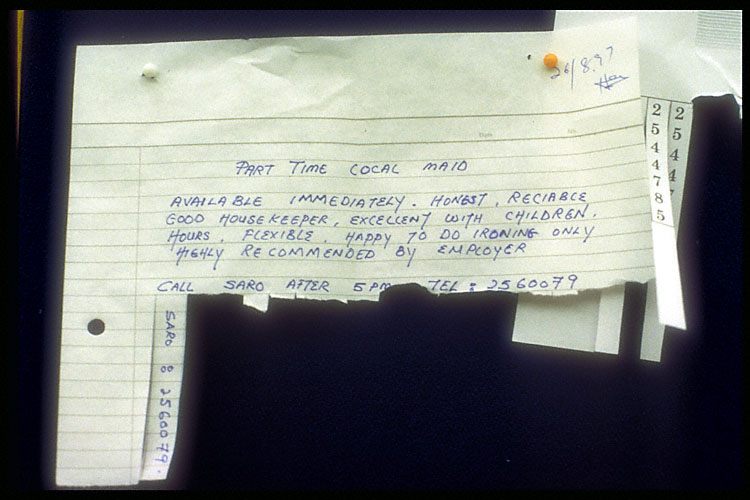 26/8.97
PART TIME COCAL MAID
AVAILABLE IMMEDIATELY. HONEST, RECIABLE
GOOD HOUSEKEEPER, EXCELLENT WITH CHILDREN.
HOURS, FLEXIBLE, HAPPY TO DO IRONING ONLY
HIGHLY RECOMMENDED BY EMPLOYER
CALL SARO AFTER 5PM TEL: 2560079
SARO : 2560079.
2544785
2544